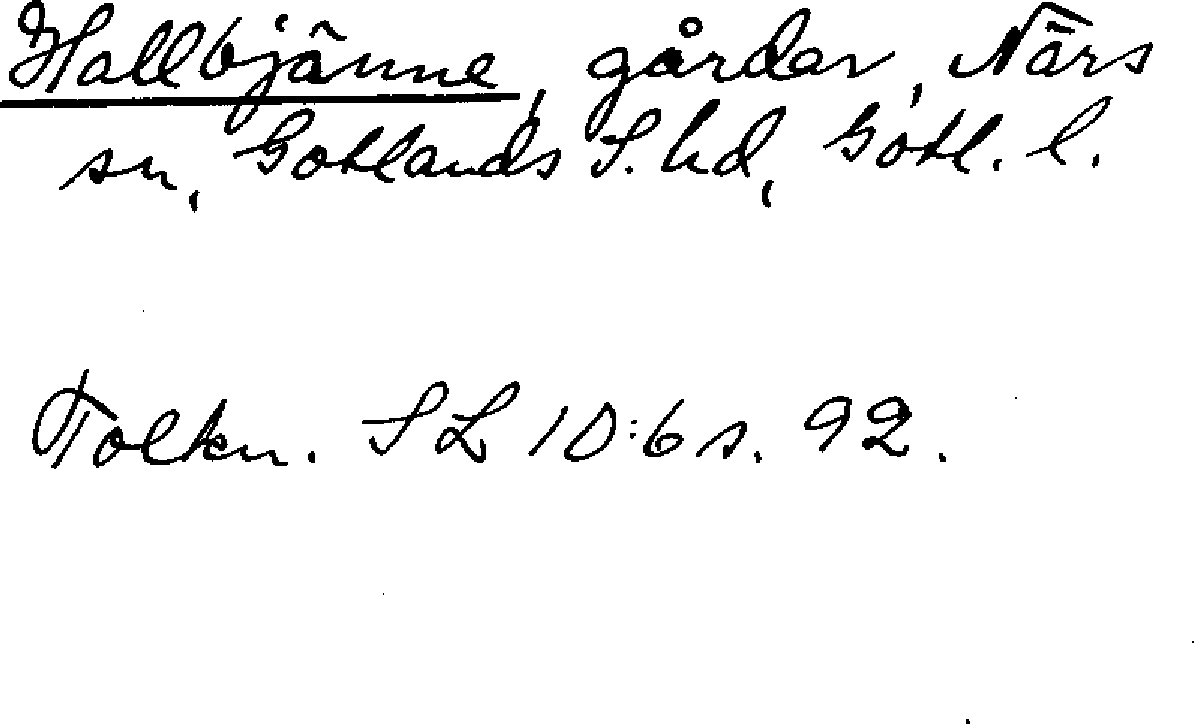 Hallbjänne, gårdar, Närs
sn, Gotlands S. hd, Gotl. l.
Tolkn. SL 10:6 s. 92.